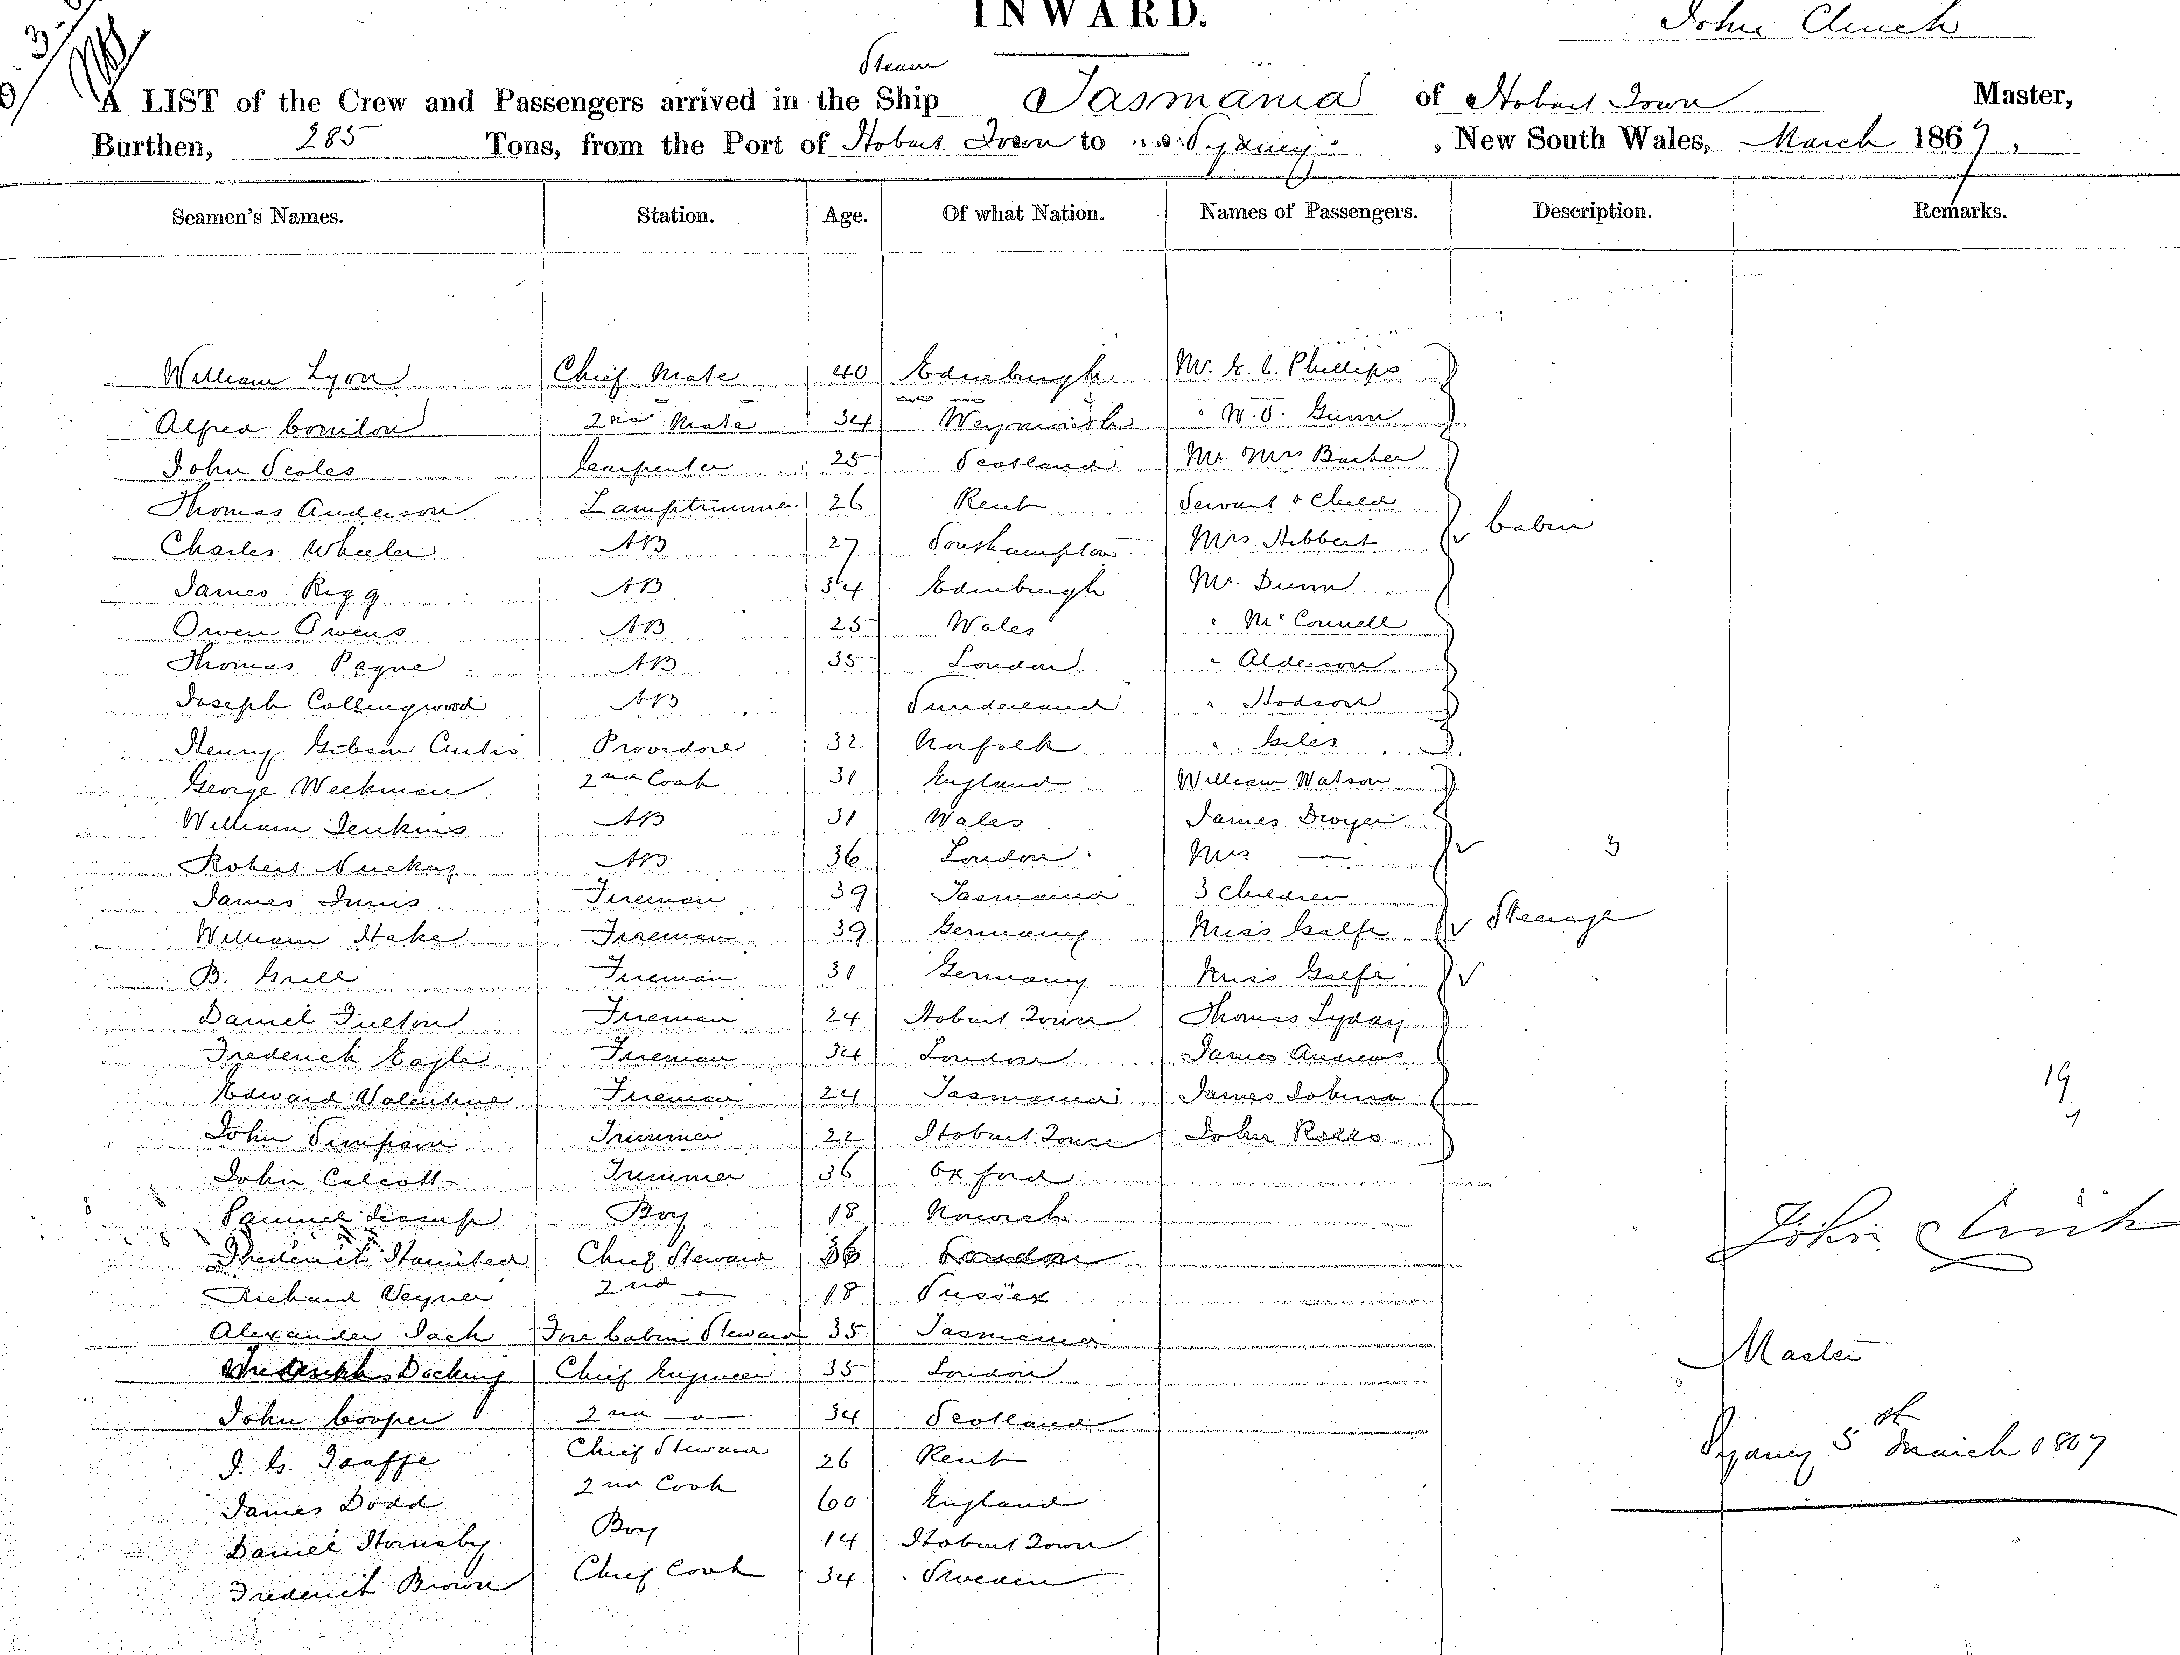 INWARD.
John Clinch
Steam
A LIST of the Crew and Passengers arrived in the Ship Tasmania of Hobart Town Master,
Burthen, 285 Tons, from the Port of Hobart Town to Sydney, New South Wales, March 1867.
Seamen's Names. Station. Age. Of what Nation. Names of Passengers. Description. Remarks.
William Lyon Chief Mate 40 Edinburgh Mr. Phillips
Alfred 2nd Mate 34 Weymouth " W. Gunn
John Scoles Carpenter 25 Scotland Mr Mrs Barber
Thomas Anderson Lamptrimmer 26 Kent Servant & Child
Charles Wheeler AB 27 Southampton Mrs Hibbert Cabin
James Rigg AB 34 Edinburgh Mr. Dunn
Owen Owens AB 25 Wales " McConnell
Thomas Payne AB 35 London " Alderson
Joseph Collingwood AB Sunderland " Hodson
Henry Gibson Curtis Providore 32 Norfolk " Giles
George Weekman 2nd Cook 31 England William Watson
William Jenkins AB 31 Wales James Dwyer
Robert AB 36 London Mrs — 3
James Innis Fireman 39 Tasmania 3 Children
William Hake Fireman 39 Germany Miss Steerage
B. Grill Fireman 31 Germany Miss
Daniel Fulton Fireman 24 Hobart Town Thomas Lyday
Frederick Eagle Fireman 34 London James Andrews
Edward Valentine Fireman 24 Tasmania James 19
John Simpson Trimmer 22 Hobart Town John 7
John Calcott Trimmer 36 Oxford
Samuel Boy 18 Norwich
Frederick Chief Steward 36 London
John Clinch
Richard 2nd — 18 Sussex
Alexander Jack Fore Cabin Steward 35 Tasmania
Master
Docking Chief Engineer 35 London
John Cooper 2nd — 34 Scotland
Sydney 5th March 1867
J. G. Taaffe Chief Steward 26 Kent
James Dodd 2nd Cook 60 England
Daniel Hornsby Boy 14 Hobart Town
Frederick Brown Chief Cook 34 Sweden